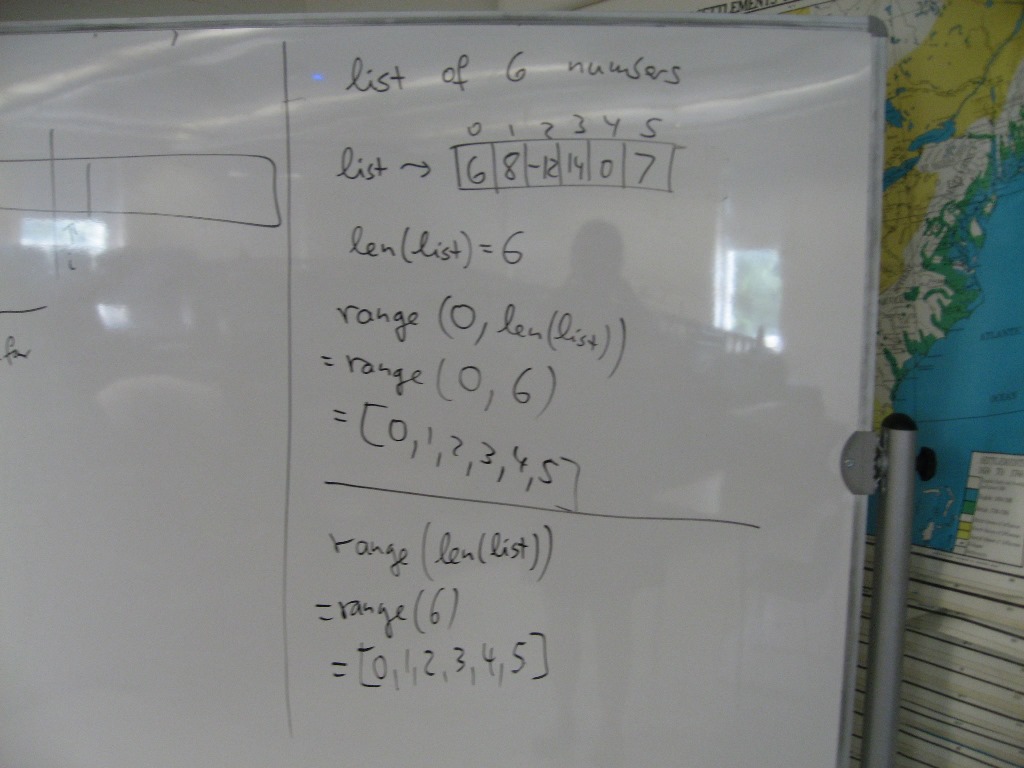 list of 6 numbers
0 1 2 3 4 5
list → 6 8 -12 14 0 7
len(list) = 6
range (0, len(list))
= range (0, 6)
= [0, 1, 2, 3, 4, 5]
range (len(list))
= range (6)
= [0, 1, 2, 3, 4, 5]
i
for
ATLANTIC
OCEAN